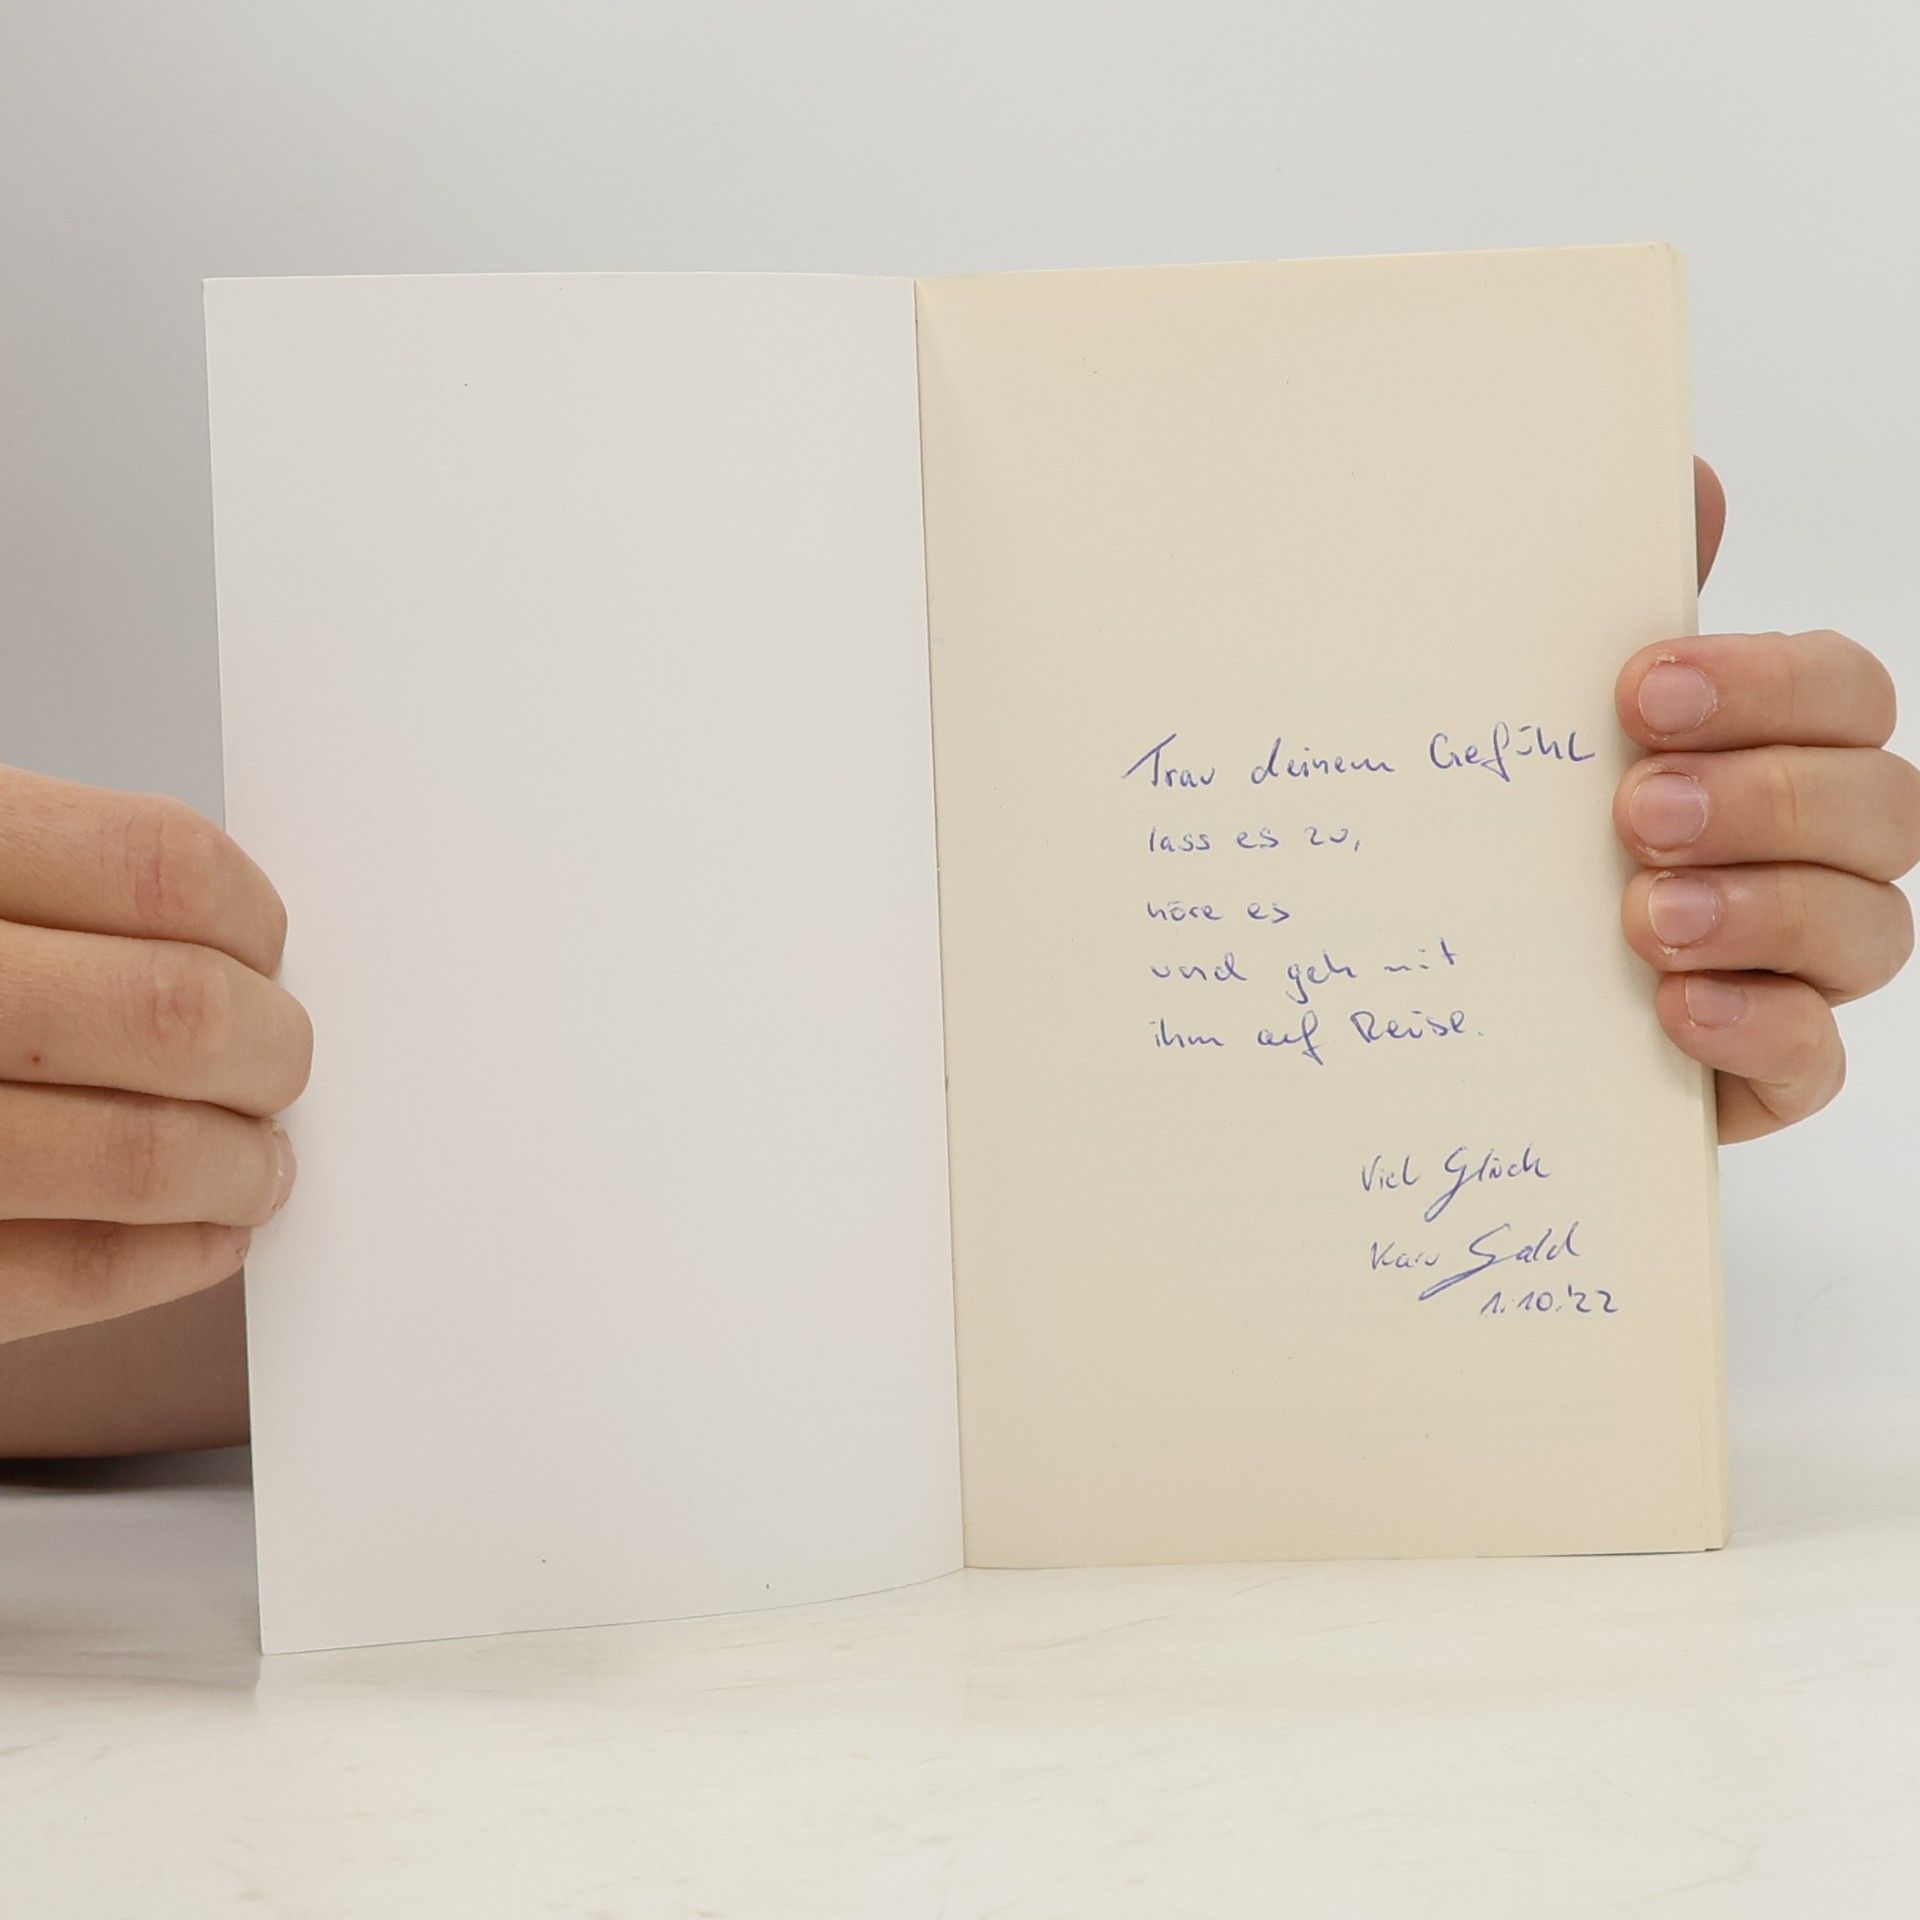 Trau deinem Gefühl
lass es zu,
höre es
und geh mit
ihm auf Reise.
Viel Glück
1.10.'22